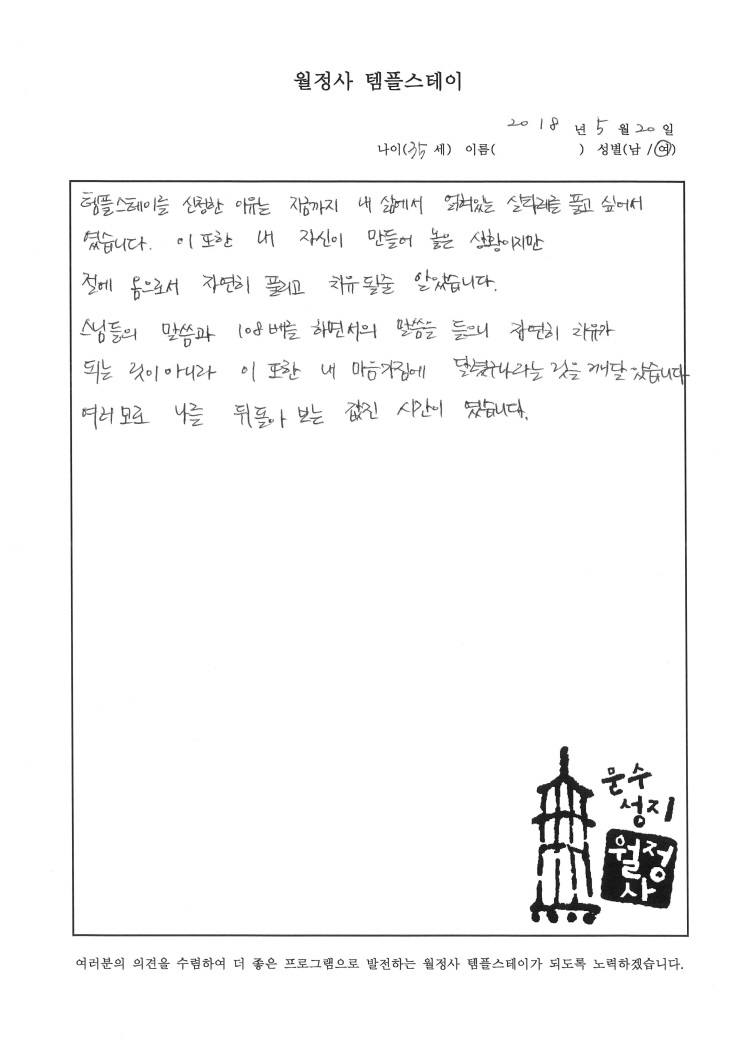 월정사 템플스테이
2018 년 5 월 20 일
나이(35 세) 이름( ) 성별(남 / 여)
템플스테이를 신청한 이유는 지금까지 내 삶에서 얽혀있는 실타래를 풀고 싶어서
였습니다. 이 또한 내 자신이 만들어 놓은 상황이지만
절에 옴으로서 자연히 풀리고 치유 될줄 알았습니다.
스님들의 말씀과 108배를 하면서의 말씀을 들으니 자연히 치유가
되는 것이 아니라 이 또한 내 마음가짐에 달렸구나라는 것을 깨달았습니다
여러모로 나를 뒤돌아 보는 값진 시간이 였습니다.
문수
성지
월정
사
여러분의 의견을 수렴하여 더 좋은 프로그램으로 발전하는 월정사 템플스테이가 되도록 노력하겠습니다.